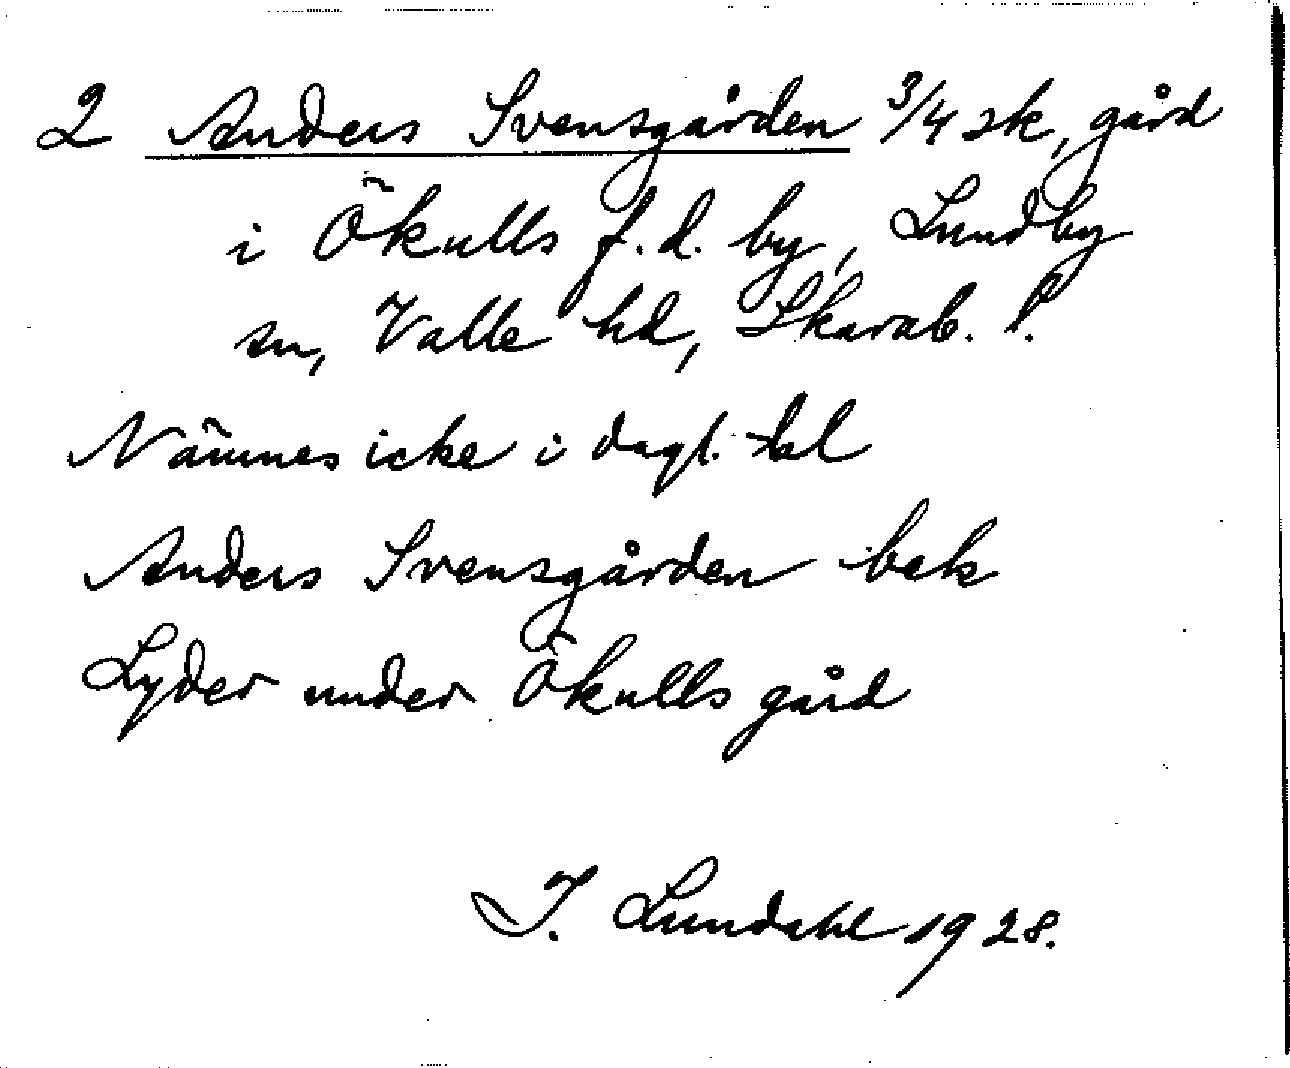 2 Anders Svensgården 3/4 sk, gård
i Ökulls f.d. by, Lundby
sn, Valle hd, Skarab. l.
Nämnes icke i dagl. tal
Anders Svensgården bek
Lyder under Ökulls gård
I. Lundahl 1928.